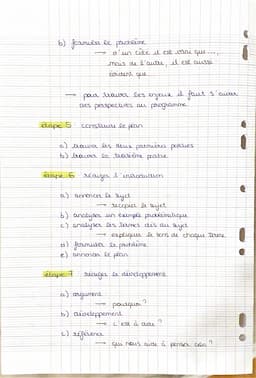 b) formuler le problème
→ d'un côté il est vrai que ...,
mais de l'autre, il est aussi
évident que
→ pour trouver les enjeux il faut s'aider
des perspectives au programme
étape 5 construire le plan
a) trouver les deux premières parties
b) trouver la troisième partie
étape 6 rédiger l'introduction
a) annoncer le sujet
→ recopier le sujet
b) analyser un exemple problématique
c) analyser les termes clés du sujet
→ expliquer le sens de chaque terme
d) formuler le problème
e) annoncer le plan
étape 7 rédiger le développement
a) argument
→ pourquoi ?
b) développement
→ c'est à dire ?
c) référence
→ qui nous aide à penser cela ?